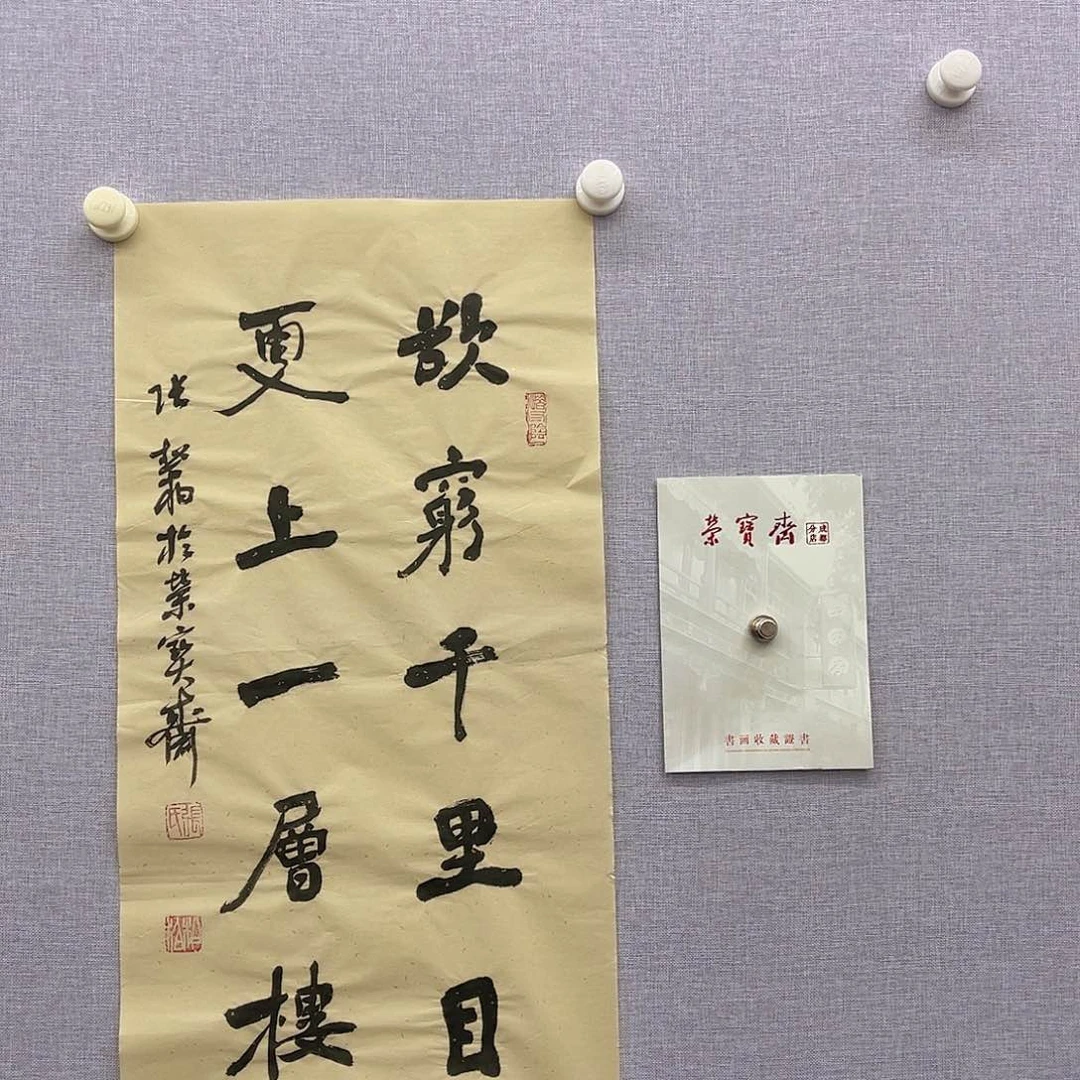 欲窮千里目
更上一層樓
張楷於榮寶齋
榮寶齋
成都
分店
書画收藏證書